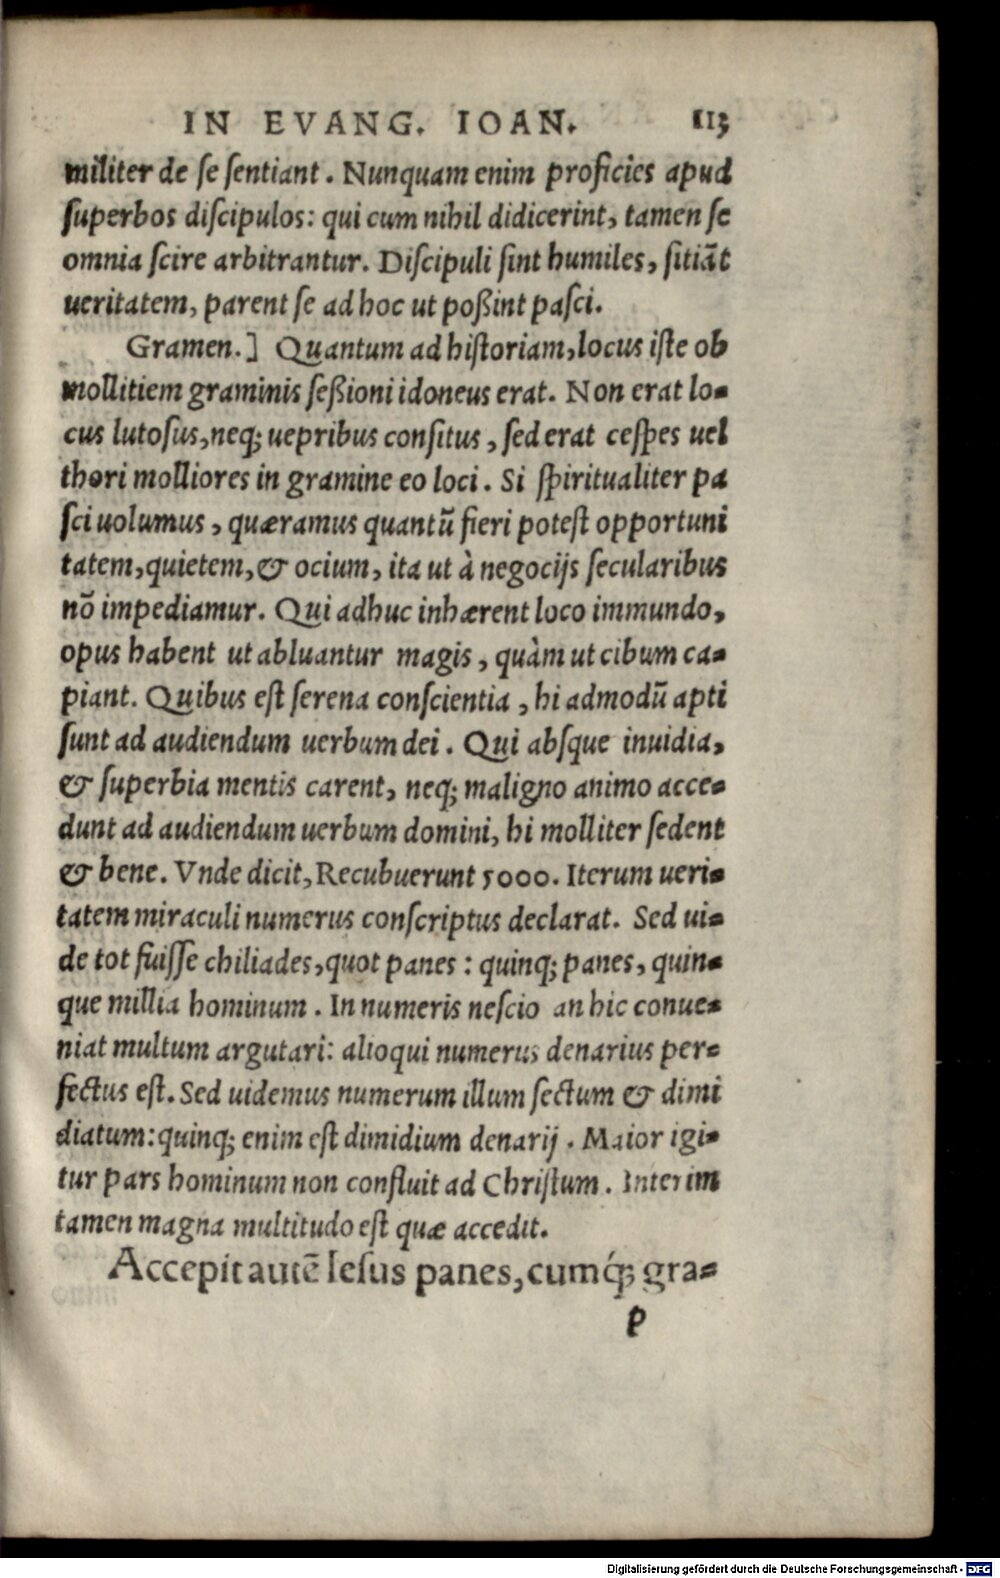 IN EVANG. IOAN. 113
militer de se sentiant. Nunquam enim proficies apud
superbos discipulos: qui cum nihil didicerint, tamen se
omnia scire arbitrantur. Discipuli sint humiles, sitiāt
ueritatem, parent se ad hoc ut poßint pasci.
Gramen.] Quantum ad historiam, locus iste ob
mollitiem graminis seßioni idoneus erat. Non erat lo-
cus lutosus, neq; uepribus consitus, sed erat cespes uel
thori molliores in gramine eo loci. Si spiritualiter pa
sci uolumus, quæramus quantū fieri potest opportuni
tatem, quietem, & ocium, ita ut à negocijs secularibus
nō impediamur. Qui adhuc inhærent loco immundo,
opus habent ut abluantur magis, quàm ut cibum ca-
piant. Quibus est serena conscientia, hi admodū apti
sunt ad audiendum uerbum dei. Qui absque inuidia,
& superbia mentis carent, neq; maligno animo acce-
dunt ad audiendum uerbum domini, hi molliter sedent
& bene. Vnde dicit, Recubuerunt 5000. Iterum ueri-
tatem miraculi numerus conscriptus declarat. Sed ui-
de tot fuisse chiliades, quot panes: quinq; panes, quin-
que millia hominum. In numeris nescio an hic conue-
niat multum argutari: alioqui numerus denarius per-
fectus est. Sed uidemus numerum illum sectum & dimi
diatum: quinq; enim est dimidium denarij. Maior igi-
tur pars hominum non confluit ad Christum. Interim
tamen magna multitudo est quæ accedit.
Accepit autē Iesus panes, cumq́; gra-
P
Digitalisierung gefördert durch die Deutsche Forschungsgemeinschaft - DFG